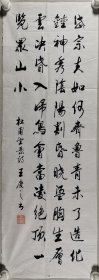 岱宗夫如何齊魯青未了造化
鍾神秀陰陽割昏曉盪胸生層
雲決眥入歸鳥會當凌絕頂一
覽眾山小
杜甫望岳詩 王